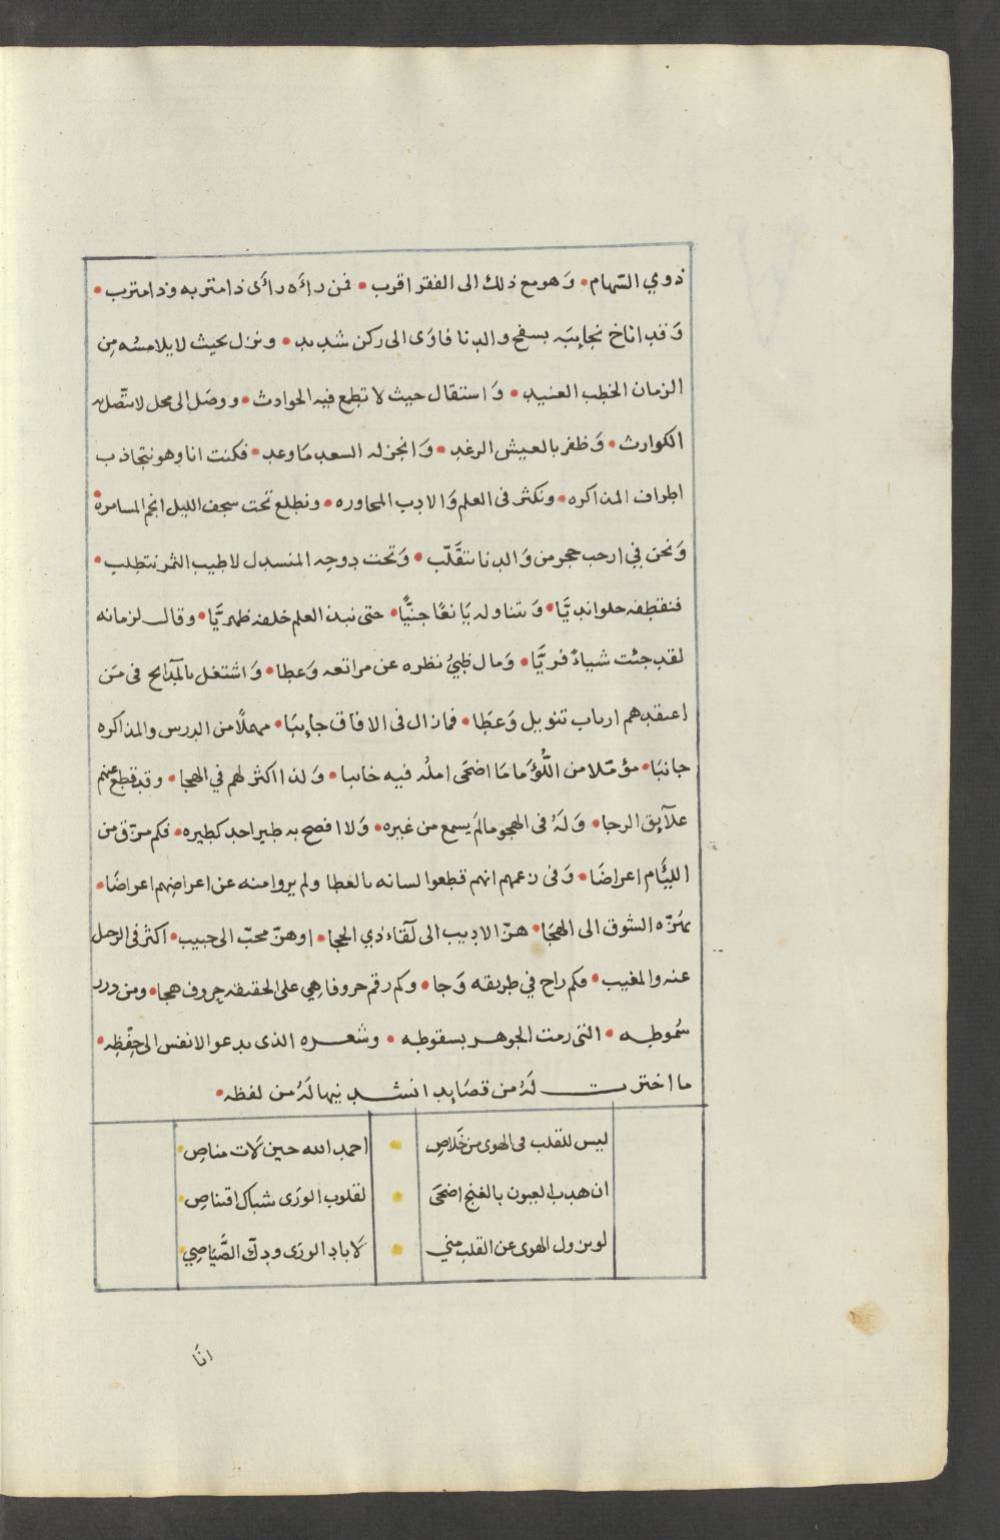 ذوي السهام • وَهومع ذلك الى الفقر اقرب • فمن رأَه رأَى ذا متربه وذا مترب •
وَقد اناخ نجايبَه بسفح والدنا فاوَى الى ركن شديد • ونزل بحيث لا يلامسُه مِن
الزمان الخطب العنيد • وَاستقال حيث لا تطمع فيه الحوادث • ووصَل الى محل لا تتّصل به
الكوارث • وَظفر بالعيش الرغد • وَانجز له السعد مَا وعد • فكنت انا وهو نتجاذب
اطراف المذاكره • ونكثر فى العلم وَالادب المحاوره • ونطلع تحت سجف الليل انجم المسامرة •
وَنحن في ارحب حجر من وَالدنا نتقَلّب • وَتحت دوحه المنسدل لاطيب الثمر نتطلب •
فنقطفه حلوا نديَّا • وَنتناوله يَانعًا جنيًّا • حتى نبذ العلم خلفه ظهريَّا • وقال لزمانه
لقد جئت شياءً فريَّا • وَمال ظبيُ نظره عن مراتعه وَعطا • وَاشتغل بالمَدآئح فى مَن
اعتقدهم ارباب تنويل وَعطَا • فمازال فى الافاق جايبَا • مهملًا من الدرس والمذاكره
جانبَا • مؤمّلا من اللُّؤَمَا مَا اضحَى املُه فيه خايبا • وَلذا اكثر لهم في الهجا • وقد قطع عنهم
علآيق الرجا • وَلَهُ فى الهجو مالَم يسمع من غيره • وَلا افصح به طير احد كطيره • فكم مزّق من
الليَّام اعراضَا • وَفى زعمهم انهم قطعوا لسانه بالعطا ولم يروا منه عن اعراضِهم اعراضَا •
يهُزّه الشوق الى الهجَا • هزّ الاديب الى لقَاء ذي الحجا • اوهزّ محبّ الى حبيب • اكثر فى الرحل
عنه والمغيب • فكم راح في طريقه وَجا • وكم رقم حروفا هِي على الحقيقه حروف هجا • ومن درر
سُموطه • التى رمت الجوهر بسقوطه • وشعره الذى يدعو الانفس الى حِفْظِه •
ما اخترت لَهُ من قصَايد انشدنيها لَهُ من لفظه •
ليس للقلب فى الهوى من خَلاصِ • احمد الله حين لَات مناصِ •
ان هدب العيون بالغنج اضحَى • لقلوب الورَى شباك اقتناصِ •
لو يزول الهوى عن القلب مني • لَاباد الورَى ودكّ الصَّيَاصِي •
انَا